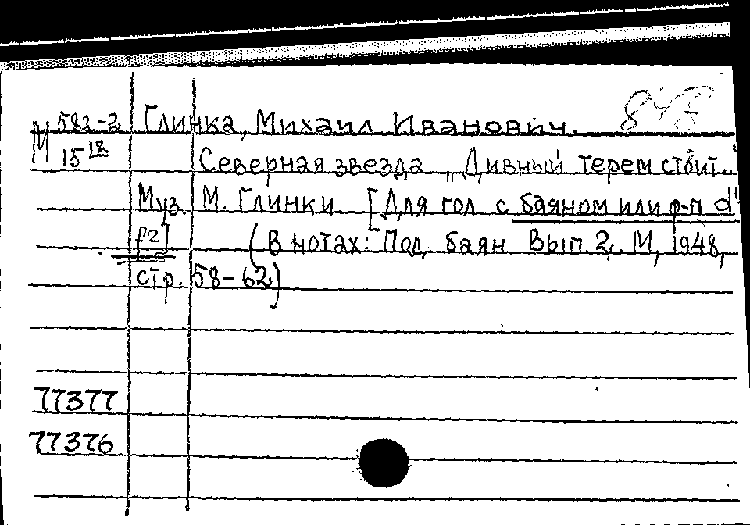 М 582-2 Глинка, Михаил Иванович.
15 18 Северная звезда „Дивный терем стоит..."
Муз. М. Глинки. [Для гол с баяном или ф-п d
f2] (В нотах: Под баян Вып 2. М, 1948,
стр. 58-62)
77377
77376